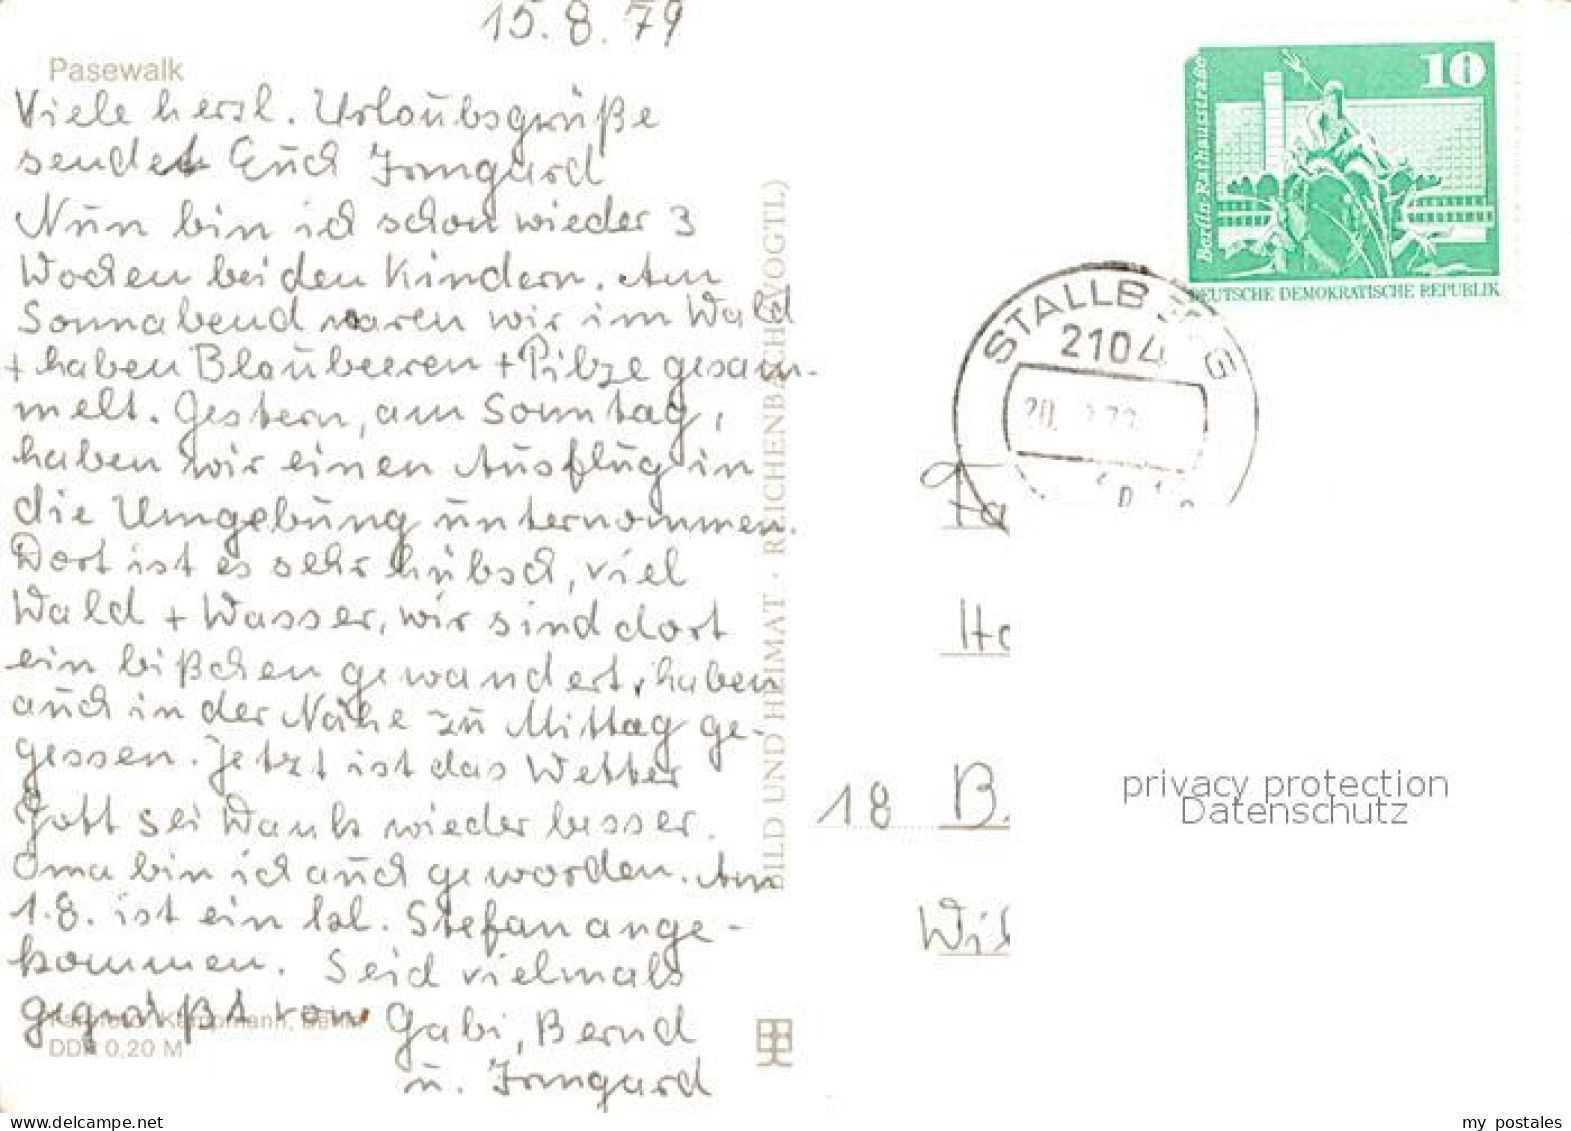 15.8.79
Pasewalk
Viele herzl. Urlaubsgrüße
sendet Euch Irmgard
Nun bin ich schon wieder 3
Wochen bei den Kindern. Am
Sonnabend waren wir im Wald
+ haben Blaubeeren + Pilze gesam-
melt. Gestern, am Sonntag,
haben wir einen Ausflug in
die Umgebung unternommen.
Dort ist es sehr hübsch, viel
Wald + Wasser, wir sind dort
ein bißchen gewandert, haben
auch in der Nähe zu Mittag ge-
gessen. Jetzt ist das Wetter
Gott sei Dank wieder besser.
Oma bin ich auch geworden. Am
1.8. ist ein kl. Stefan ange-
kommen. Seid vielmals
gegrüßt von Gabi, Bernd
u. Irmgard
Kempmann, Berlin
DDR 0,20 M
BILD UND HEIMAT · REICHENBACH (VOGTL)
10
Berlin Rathausstraße
DEUTSCHE DEMOKRATISCHE REPUBLIK
STALLBERG
2104
Fa
Ha
18 B.
Wil
privacy protection
Datenschutz
www.delcampe.net
my_postales